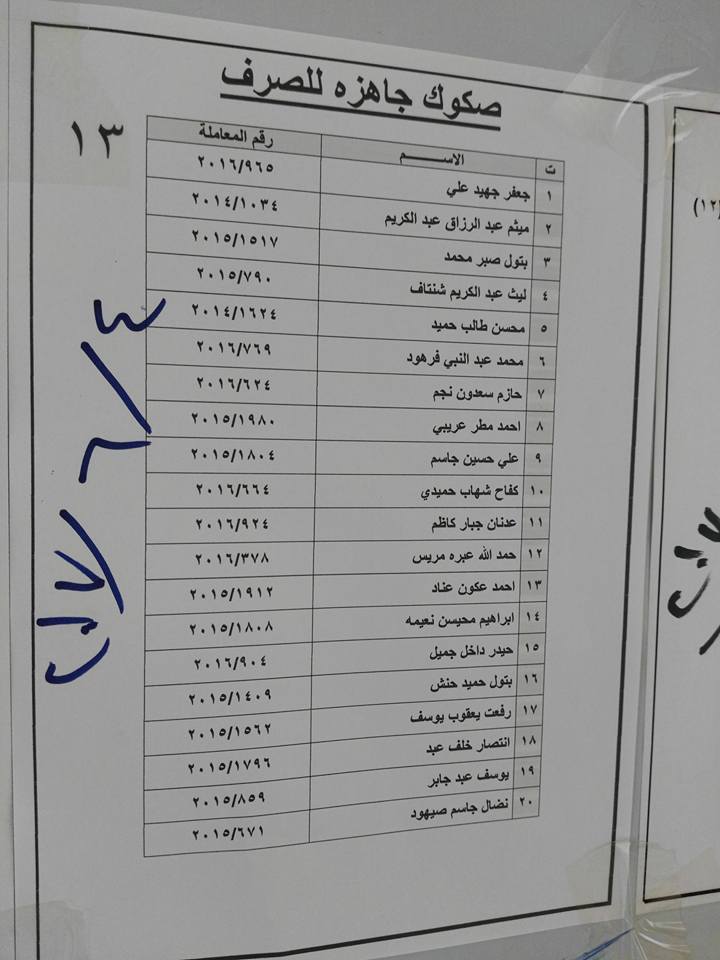 صكوك جاهزه للصرف
١٣
ت الاســـــم رقم المعاملة
١ جعفر جهيد علي ٢٠١٦/٩٦٥
٢ ميثم عبد الرزاق عبد الكريم ٢٠١٤/١٠٣٤
٣ بتول صبر محمد ٢٠١٥/١٥١٧
٤ ليث عبد الكريم شنتاف ٢٠١٥/٧٩٠
٥ محسن طالب حميد ٢٠١٤/١٦٢٤
٦ محمد عبد النبي فرهود ٢٠١٦/٧٦٩
٧ حازم سعدون نجم ٢٠١٦/٦٢٤
٨ احمد مطر عريبي ٢٠١٥/١٩٨٠
٩ علي حسين جاسم ٢٠١٥/١٨٠٤
١٠ كفاح شهاب حميدي ٢٠١٦/٦٦٤
١١ عدنان جبار كاظم ٢٠١٦/٩٢٤
١٢ حمد الله عبره مريس ٢٠١٦/٣٧٨
١٣ احمد عكون عناد ٢٠١٥/١٩١٢
١٤ ابراهيم محيسن نعيمه ٢٠١٥/١٨٠٨
١٥ حيدر داخل جميل ٢٠١٦/٩٠٤
١٦ بتول حميد حنش ٢٠١٥/١٤٠٩
١٧ رفعت يعقوب يوسف ٢٠١٥/١٥٦٢
١٨ انتصار خلف عبد ٢٠١٥/١٧٩٦
١٩ يوسف عبد جابر ٢٠١٥/٨٥٩
٢٠ نضال جاسم صيهود ٢٠١٥/٦٧١
٢٠١٧/٦/٤
(١٢)